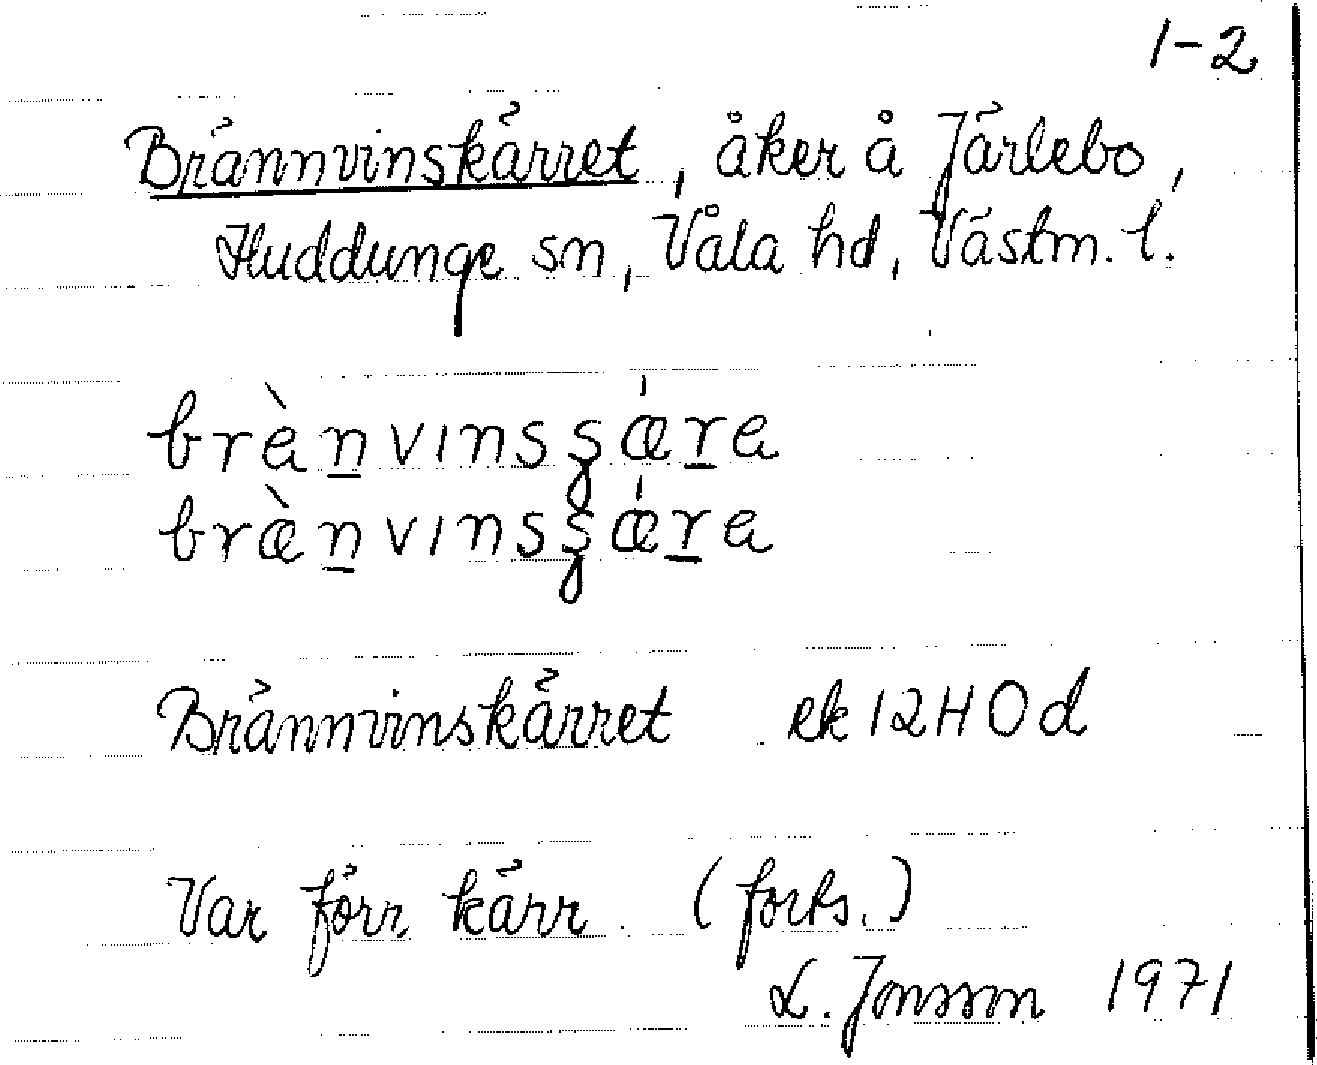 1-2
Brännvinskärret, åker å Järlebo,
Huddunge sn, Våla hd, Västm. l.
brèn̲vinsʂǽr̲a
bræ̀n̲vinsʂǽr̲a
Brännvinskärret ek 12H0d
Var förr kärr. (forts.)
L. Jonsson 1971